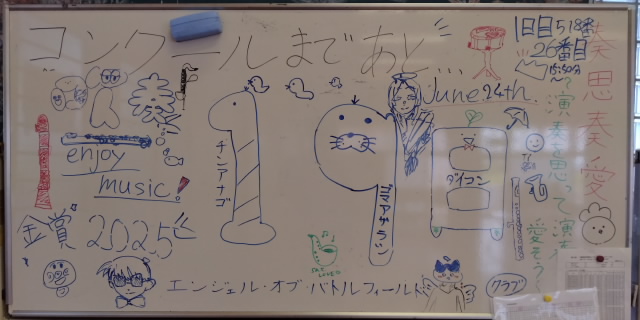 コンクールまであと...
1日目 518番
26番目
15:50分
〜
June 24th.
19日
チンアナゴ
ゴマアザラシ
ダイコン
enjoy
music!
金賞 2025
奏思奏愛
演奏を思って演奏
愛そう
エンジェル・オブ・バトルフィールド
クラブ